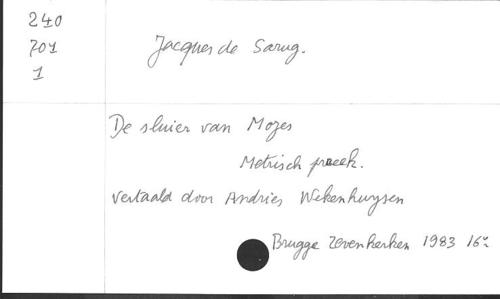 240
701
1
Jacques de Sarug.
De sluier van Mozes
Metrisch preek.
vertaald door Andries Wekenhuysen
Brugge Zevenkerken 1983 16°